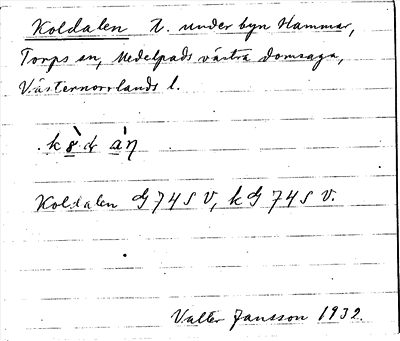 Koldalen t. under byn Hammar,
Torps sn, Medelpads västra domsaga,
Västernorrlands l.
Koldalen dJ 74 S V, k dJ 74 S V.
Valter Jansson 1932.